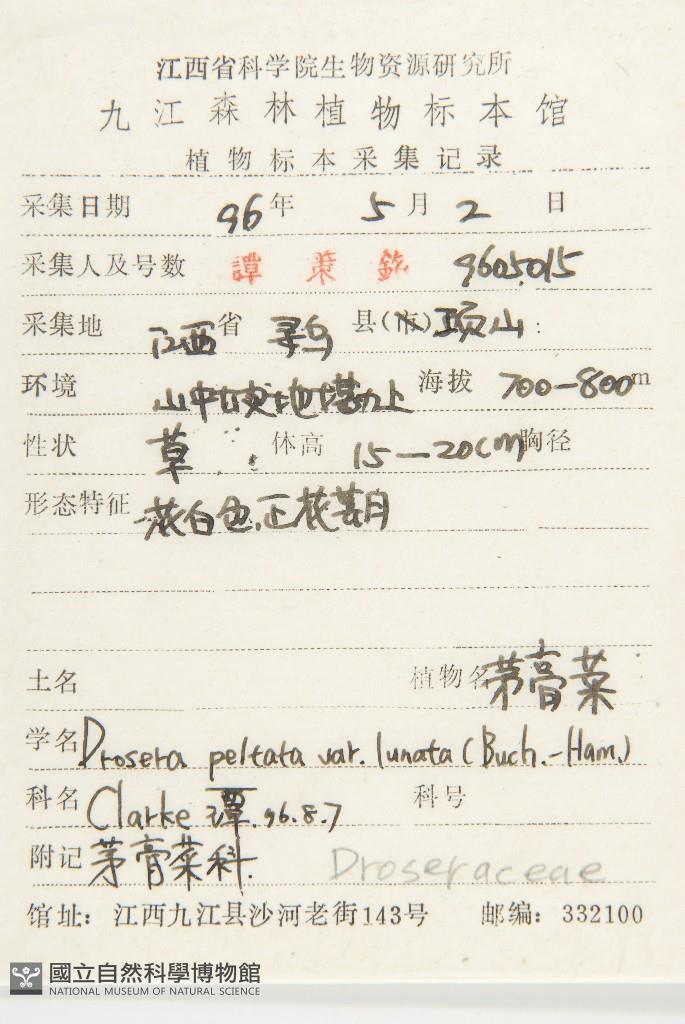 江西省科学院生物资源研究所
九江森林植物标本馆
植物标本采集记录
采集日期 96年 5月2 日
采集人及号数 譚策銘 9605015
采集地 江西省 寻乌 县(市)项山:
环境 山中 地 上 海拔 700-800m
性状 草 体高 15-20cm 胸径
形态特征 花白色.正花
土名 植物名 茅膏菜
学名 Drosera peltata var. lunata (Buch.-Ham.)
科名 Clarke 谭.96.8.7 科号
附记 茅膏菜科. Droseraceae
馆址：江西九江县沙河老街143号 邮编：332100
國立自然科學博物館
NATIONAL MUSEUM OF NATURAL SCIENCE